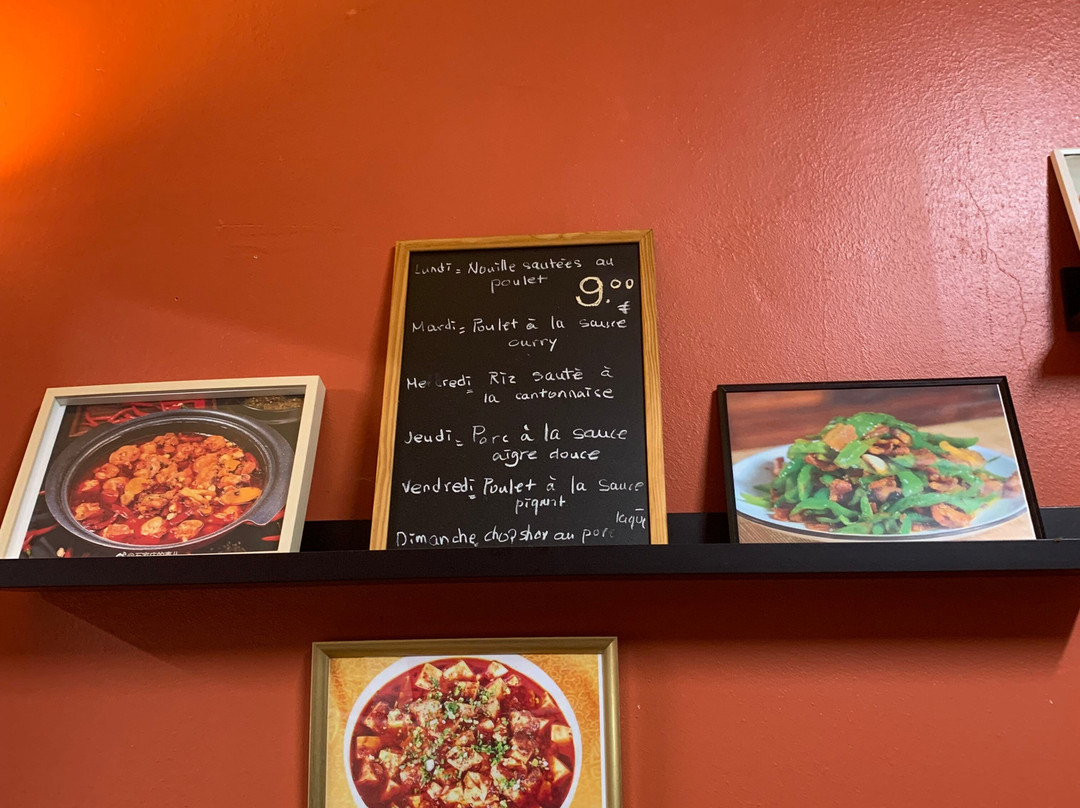 Lundi = Nouille sautées au
poulet
9.00
€
Mardi = Poulet à la sauce
curry
Mercredi = Riz sauté à
la cantonnaise
Jeudi = Porc à la sauce
aigre douce
Vendredi = Poulet à la sauce
piqant
laqué
Dimanche, chopshoy au porc